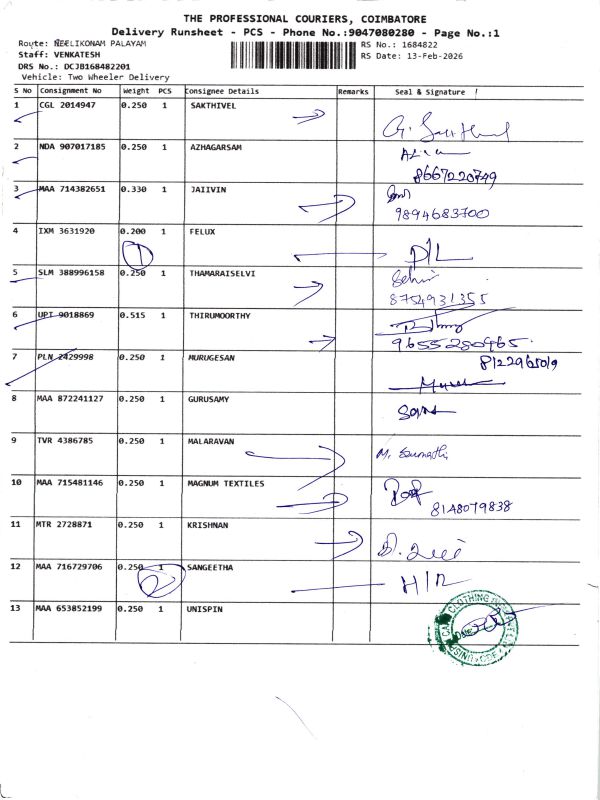 THE PROFESSIONAL COURIERS, COIMBATORE
Delivery Runsheet - PCS - Phone No.:9047080280 - Page No.:1
Route: NEELIKONAM PALAYAM
RS No.: 1684822
Staff: VENKATESH
RS Date: 13-Feb-2026
DRS No.: DCJB168482201
Vehicle: Two Wheeler Delivery
S No Consignment No Weight PCS Consignee Details Remarks Seal & Signature
1 CGL 2014947 0.250 1 SAKTHIVEL
2 NDA 907017185 0.250 1 AZHAGARSAM
8667220749
3 MAA 714382651 0.330 1 JAIIVIN
9894683700
4 IXM 3631920 0.200 1 FELUX
1 D/L
5 SLM 388996158 0.250 1 THAMARAISELVI
8754931355
6 UPT 9018869 0.515 1 THIRUMOORTHY
9655280965
7 PLN 2429998 0.250 1 MURUGESAN
8 MAA 872241127 0.250 1 GURUSAMY
9 TVR 4386785 0.250 1 MALARAVAN
10 MAA 715481146 0.250 1 MAGNUM TEXTILES
8148079838
11 MTR 2728871 0.250 1 KRISHNAN
12 MAA 716729706 0.250 1 SANGEETHA
2 H/R
13 MAA 653852199 0.250 1 UNISPIN